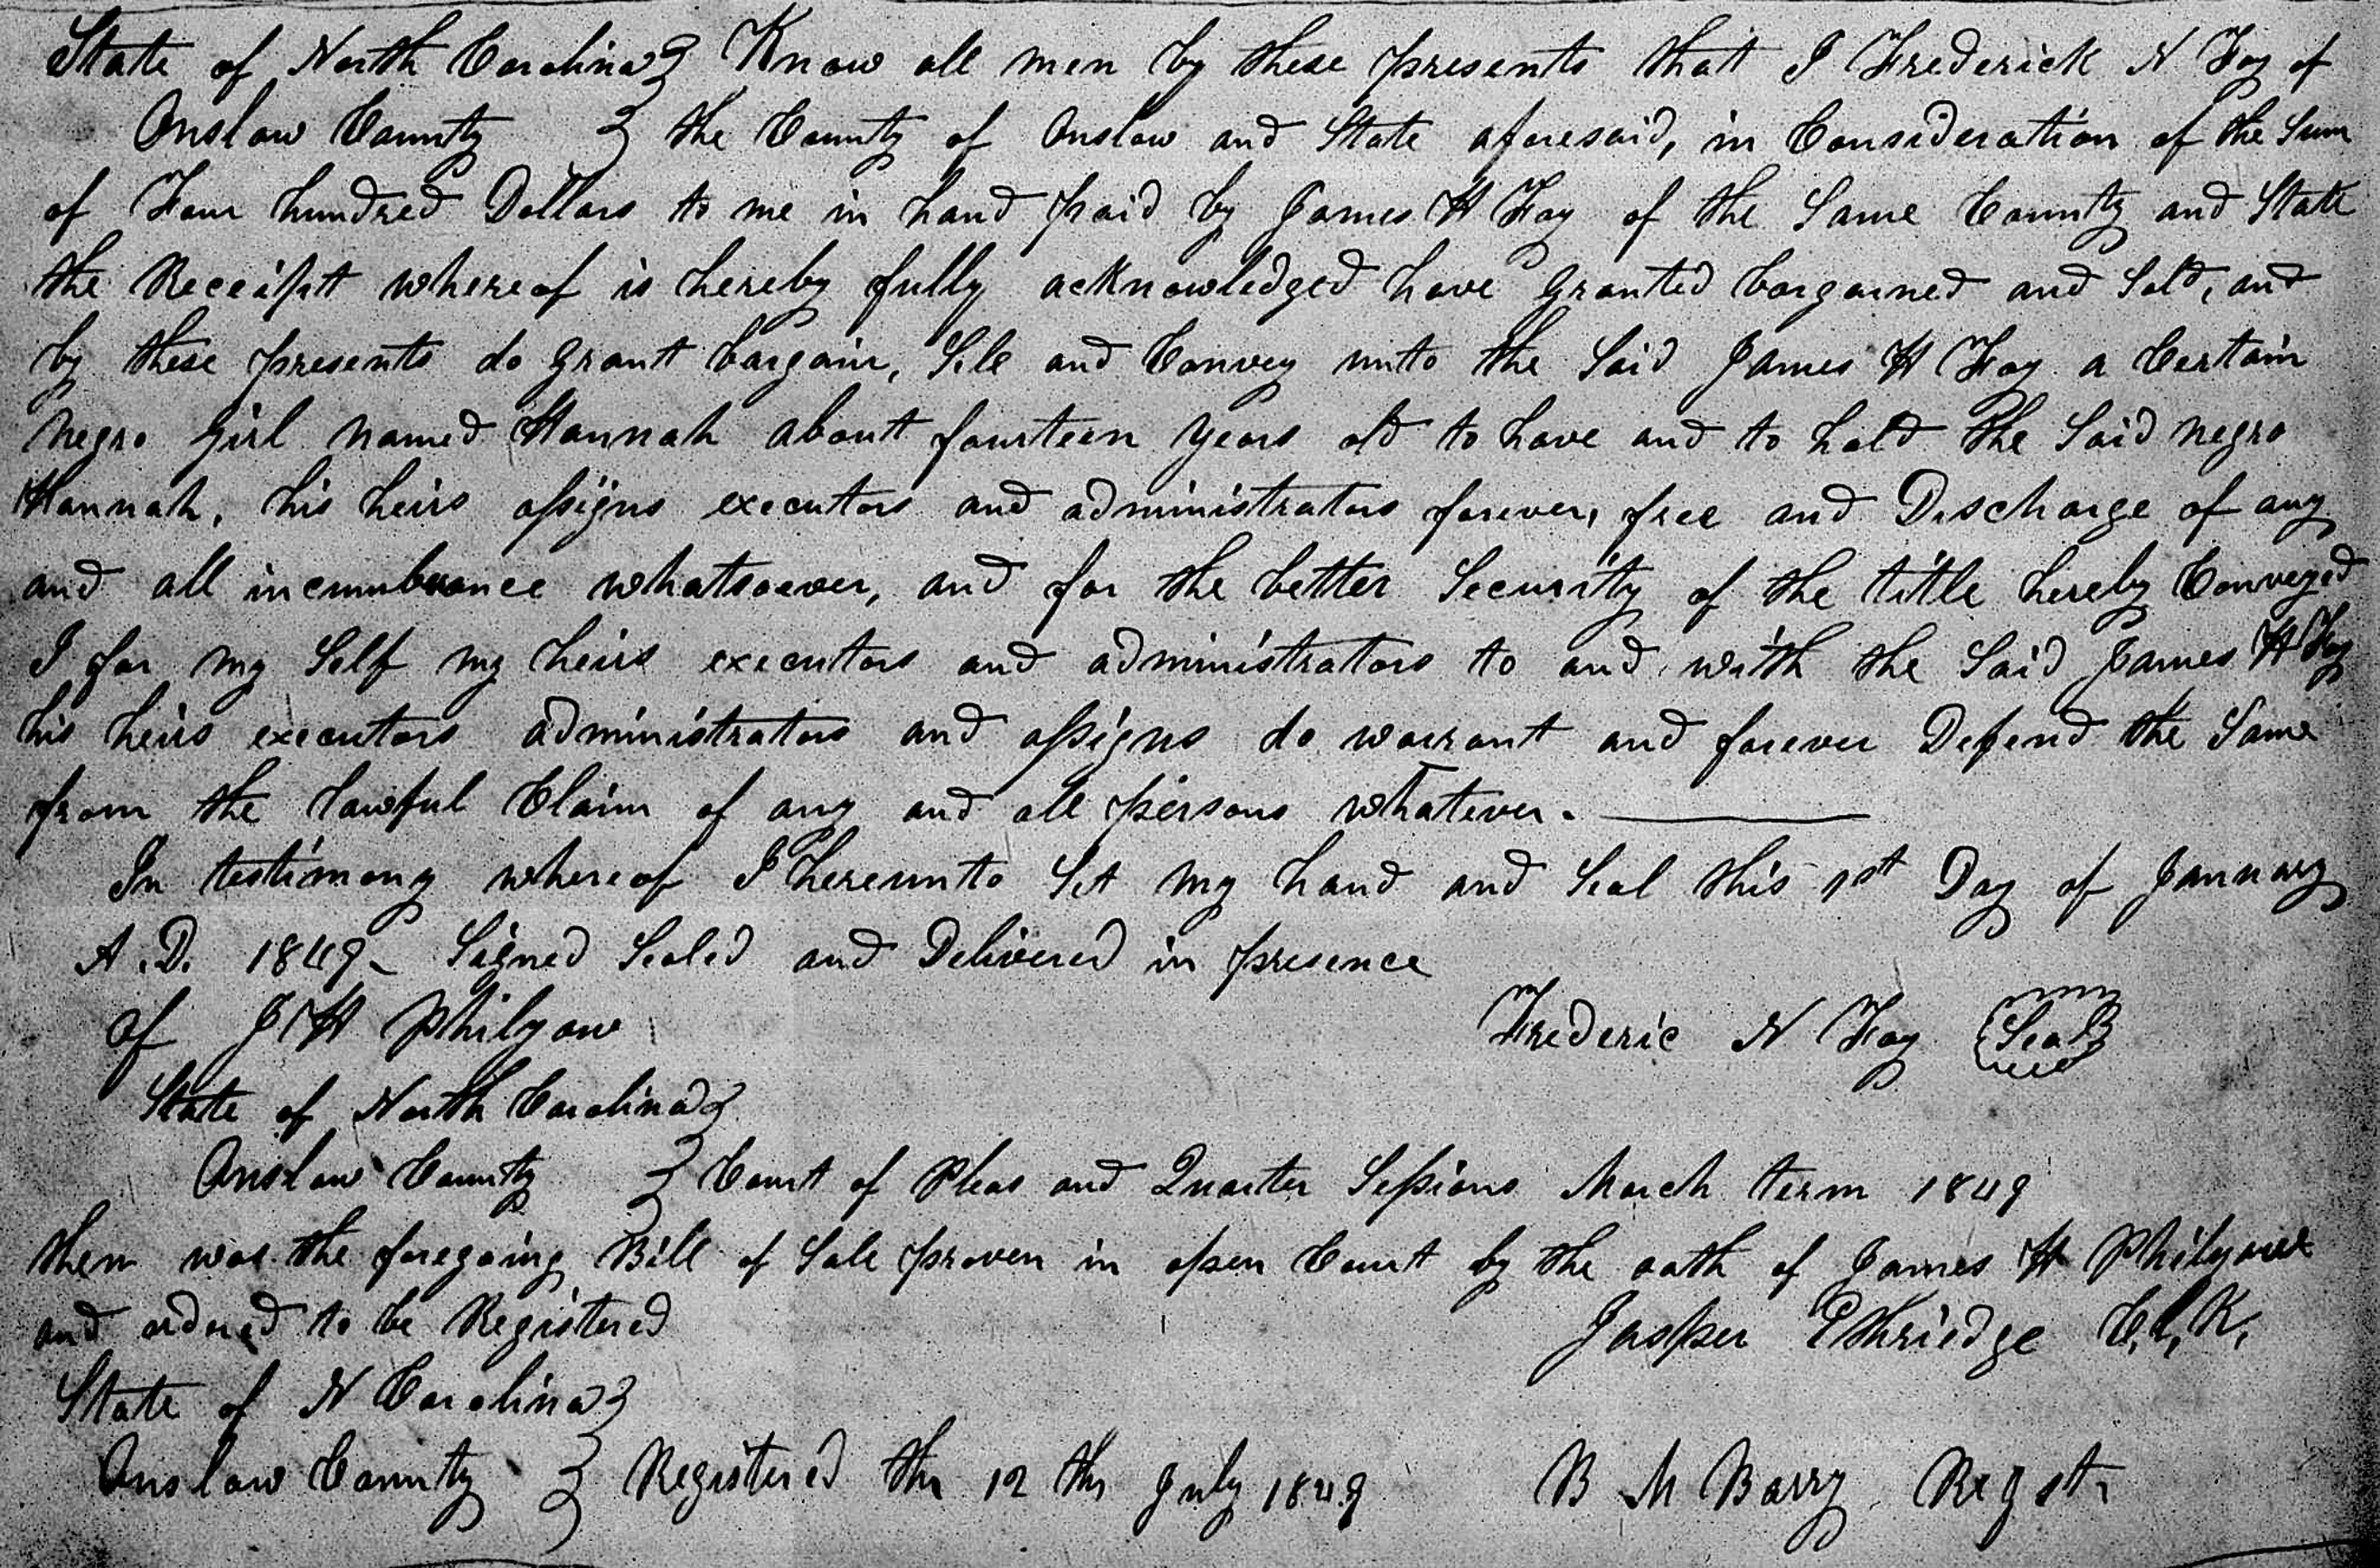 State of North Carolina } Know all men by these presents that I Frederick N Foy of
Onslow County } the County of Onslow and State aforesaid, in Consideration of the Sum
of Four hundred Dollars to me in hand paid by James H Foy of the Same County and State
the Receiptt whereof is hereby fully acknowledged have granted bargained and Sold, and
by these presents do grant bargain, Sele and Convey unto the Said James H Foy a Certain
negro girl named Hannah about fourteen years old to have and to hold the Said negro
Hannah, his heirs assigns executors and administrators forever, free and Discharge of any
and all incumberance whatsoever, and for the better Security of the title hereby Conveyed
I for my Self my heirs executors and administrators to and with the Said James H Foy
his heirs executors administrators and assigns do warrant and forever Defend the Same
from the lawful Claim of any and all persons whatever.
In testimony whereof I hereunto Set my hand and Seal this 1st Day of January
A.D. 1849 Signed Sealed and Delivered in presence
of J H Philyaw Frederic N Foy (Seal)
State of North Carolina }
Onslow County } Court of Pleas and Quarter Sessions March term 1849
then was the foregoing Bill of Sale proven in open Court by the oath of James H Philyaw
and ordered to be Registered Jasper Ethriedge C.L.K.
State of N Carolina }
Onslow County } Registered the 12 th July 1849 B M Barry Regstr